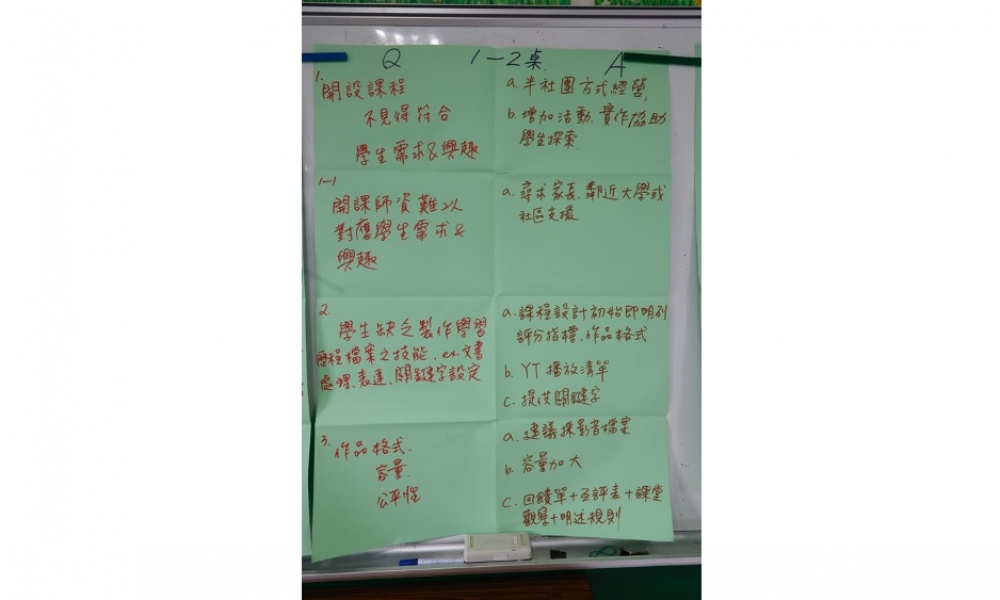 Q 1-2桌 A
1.
開設課程
不見得符合
學生需求&興趣
a. 半社團方式經營,
b. 增加活動、實作協助
學生探索.
1-1
開課師資難以
對應學生需求&
興趣
a. 尋求家長、鄰近大學或
社區支援
2.
學生缺乏製作學習
歷程檔案之技能, ex文書
處理、表達、關鍵字設定
a. 課程設計初始即明列
評分指標、作品格式
b. YT 播放清單
c. 提供關鍵字
3.
作品格式.
容量.
公平性
a. 建議採影音檔案
b. 容量加大
c. 回饋單+互評表+課堂
觀察+明述規則